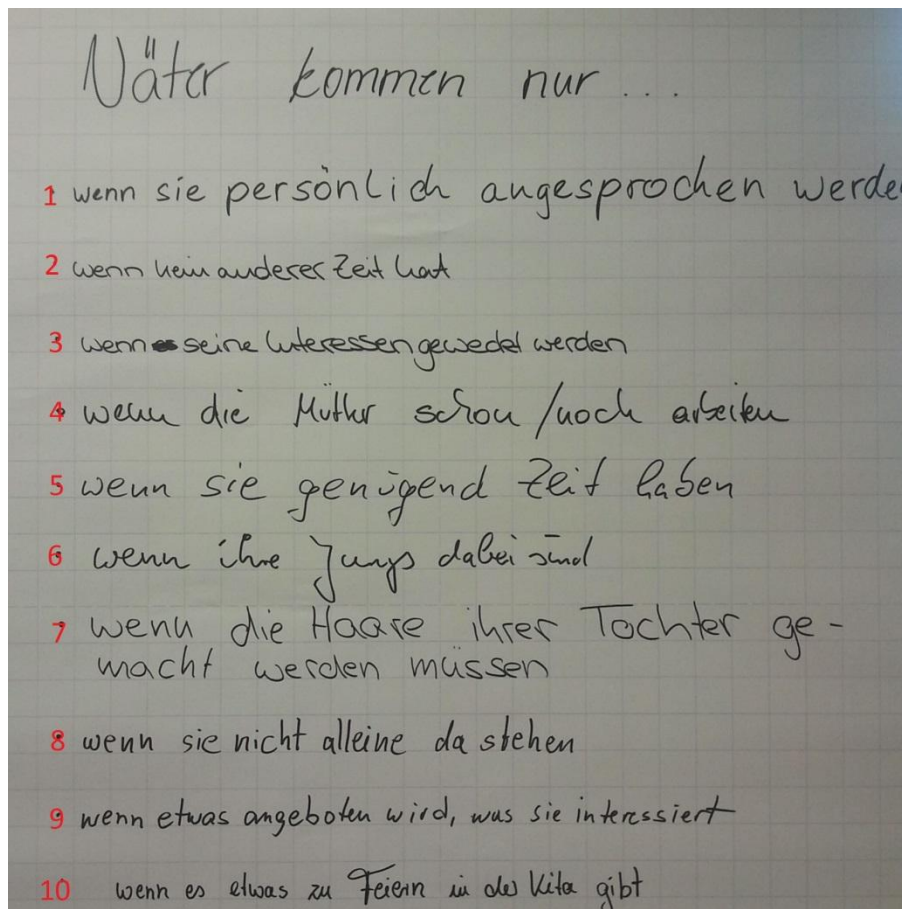 Väter kommen nur...
1 wenn sie persönlich angesprochen werde
2 wenn kein anderer Zeit hat
3 wenn seine Interessen geweckt werden
4 wenn die Mütter schon/noch arbeiten
5 wenn sie genügend Zeit haben
6 wenn ihre Jungs dabei sind
7 wenn die Haare ihrer Tochter ge-
macht werden müssen
8 wenn sie nicht alleine da stehen
9 wenn etwas angeboten wird, was sie interessiert
10 wenn es etwas zu Feiern in der Kita gibt